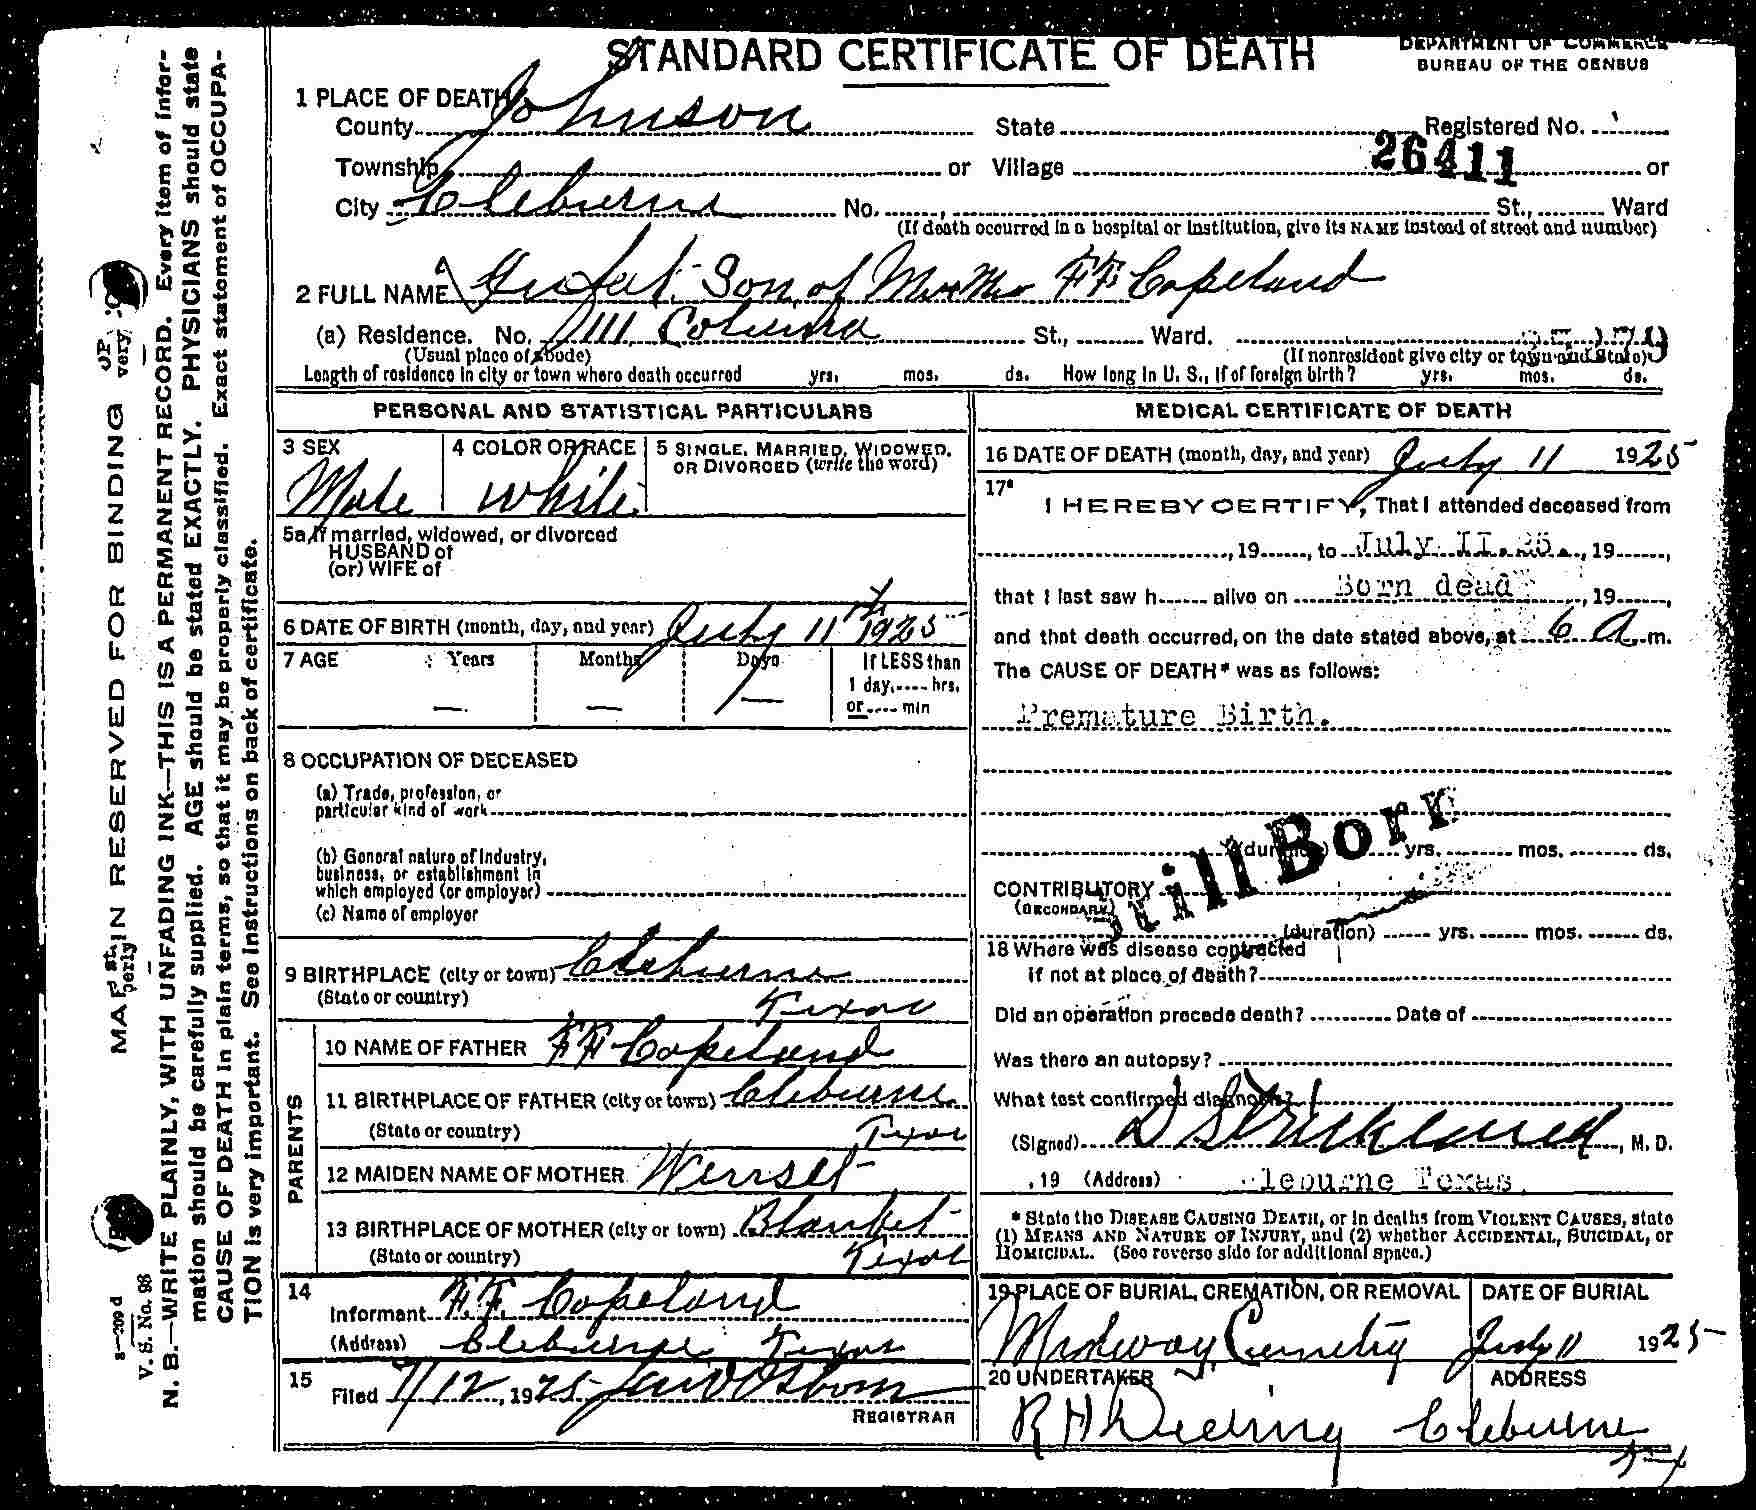 STANDARD CERTIFICATE OF DEATH
DEPARTMENT OF COMMERCE
BUREAU OF THE CENSUS
1 PLACE OF DEATH
County Johnson State Registered No.
26411
Township or Village or
City Cleburne No. St., Ward
(If death occurred in a hospital or institution, give its NAME instead of street and number)
2 FULL NAME Infant Son of Mr & Mrs F F Copeland
(a) Residence. No. St., Ward.
(Usual place of abode) (If nonresident give city or town and State)
Length of residence in city or town where death occurred yrs. mos. ds. How long in U. S., if of foreign birth? yrs. mos. ds.
PERSONAL AND STATISTICAL PARTICULARS
3 SEX
Male
4 COLOR OR RACE
White
5 SINGLE, MARRIED, WIDOWED,
OR DIVORCED (write the word)
5a If married, widowed, or divorced
HUSBAND of
(or) WIFE of
6 DATE OF BIRTH (month, day, and year) July 11th 1925
7 AGE Years Months Days If LESS than
1 day, .... hrs.
or .... min
— — —
8 OCCUPATION OF DECEASED
(a) Trade, profession, or
particular kind of work
(b) General nature of industry,
business, or establishment in
which employed (or employer)
(c) Name of employer
9 BIRTHPLACE (city or town) Cleburne
(State or country) Texas
PARENTS
10 NAME OF FATHER F F Copeland
11 BIRTHPLACE OF FATHER (city or town) Cleburne
(State or country) Texas
12 MAIDEN NAME OF MOTHER
13 BIRTHPLACE OF MOTHER (city or town) Blanket
(State or country) Texas
14
Informant F. F. Copeland
(Address) Cleburne Texas
15
Filed 7/12, 1925 Osborn
REGISTRAR
MEDICAL CERTIFICATE OF DEATH
16 DATE OF DEATH (month, day, and year) July 11 1925
17
I HEREBY CERTIFY, That I attended deceased from
, 19 , to July II.25. , 19 ,
that I last saw h alive on Born dead , 19 ,
and that death occurred, on the date stated above, at 6 A m.
The CAUSE OF DEATH* was as follows:
Premature Birth.
Still Born
(duration) yrs. mos. ds.
CONTRIBUTORY
(SECONDARY)
(duration) yrs. mos. ds.
18 Where was disease contracted
if not at place of death?
Did an operation precede death? Date of
Was there an autopsy?
What test confirmed diagnosis?
(Signed) D Strickland, M. D.
, 19 (Address) Cleburne Texas.
* State the DISEASE CAUSING DEATH, or in deaths from VIOLENT CAUSES, state
(1) MEANS AND NATURE OF INJURY, and (2) whether ACCIDENTAL, SUICIDAL, or
HOMICIDAL. (See reverse side for additional space.)
19 PLACE OF BURIAL, CREMATION, OR REMOVAL
Midway Cemetry
DATE OF BURIAL
July 11 1925
20 UNDERTAKER
R H Deering
ADDRESS
Cleburne
Tex
MARGIN RESERVED FOR BINDING
V. S. No. 98
N. B.—WRITE PLAINLY, WITH UNFADING INK—THIS IS A PERMANENT RECORD. Every item of infor-
mation should be carefully supplied. AGE should be stated EXACTLY. PHYSICIANS should state
CAUSE OF DEATH in plain terms, so that it may be properly classified. Exact statement of OCCUPA-
TION is very important. See instructions on back of certificate.